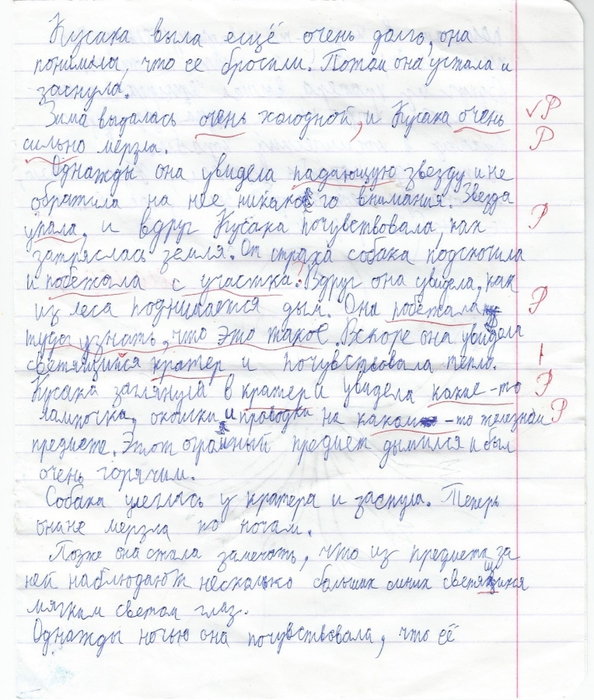 Кусака выла ещё очень долго, она
понимала, что её бросили. Потом она устала и
заснула.
Зима выдалась очень холодной, и Кусака очень
сильно мерзла.
Однажды она увидела падающую звезду и не
обратила на нее никакого внимания. Звезда
упала. и вдруг Кусака почувствовала, как
затряслась земля. От страха собака подскочила
и побежала с участка. Вдруг она увидела, как
из леса поднимается дым. Она побежала
туда узнать, что это такое. Вскоре она увидела
светящийся кратер и почувствовала тепло.
Кусака заглянула в кратер и увидела какие-то
лампочки, окошки и проводки на каком-то железном
предмете. Этот огромный предмет дымился и был
очень горячим.
Собака улеглась у кратера и заснула. Теперь
она не мерзла по ночам.
Позже она стала замечать, что из предмета за
ней наблюдают несколько больших синих светящихся
мягким светом глаз.
Однажды ночью она почувствовала, что её